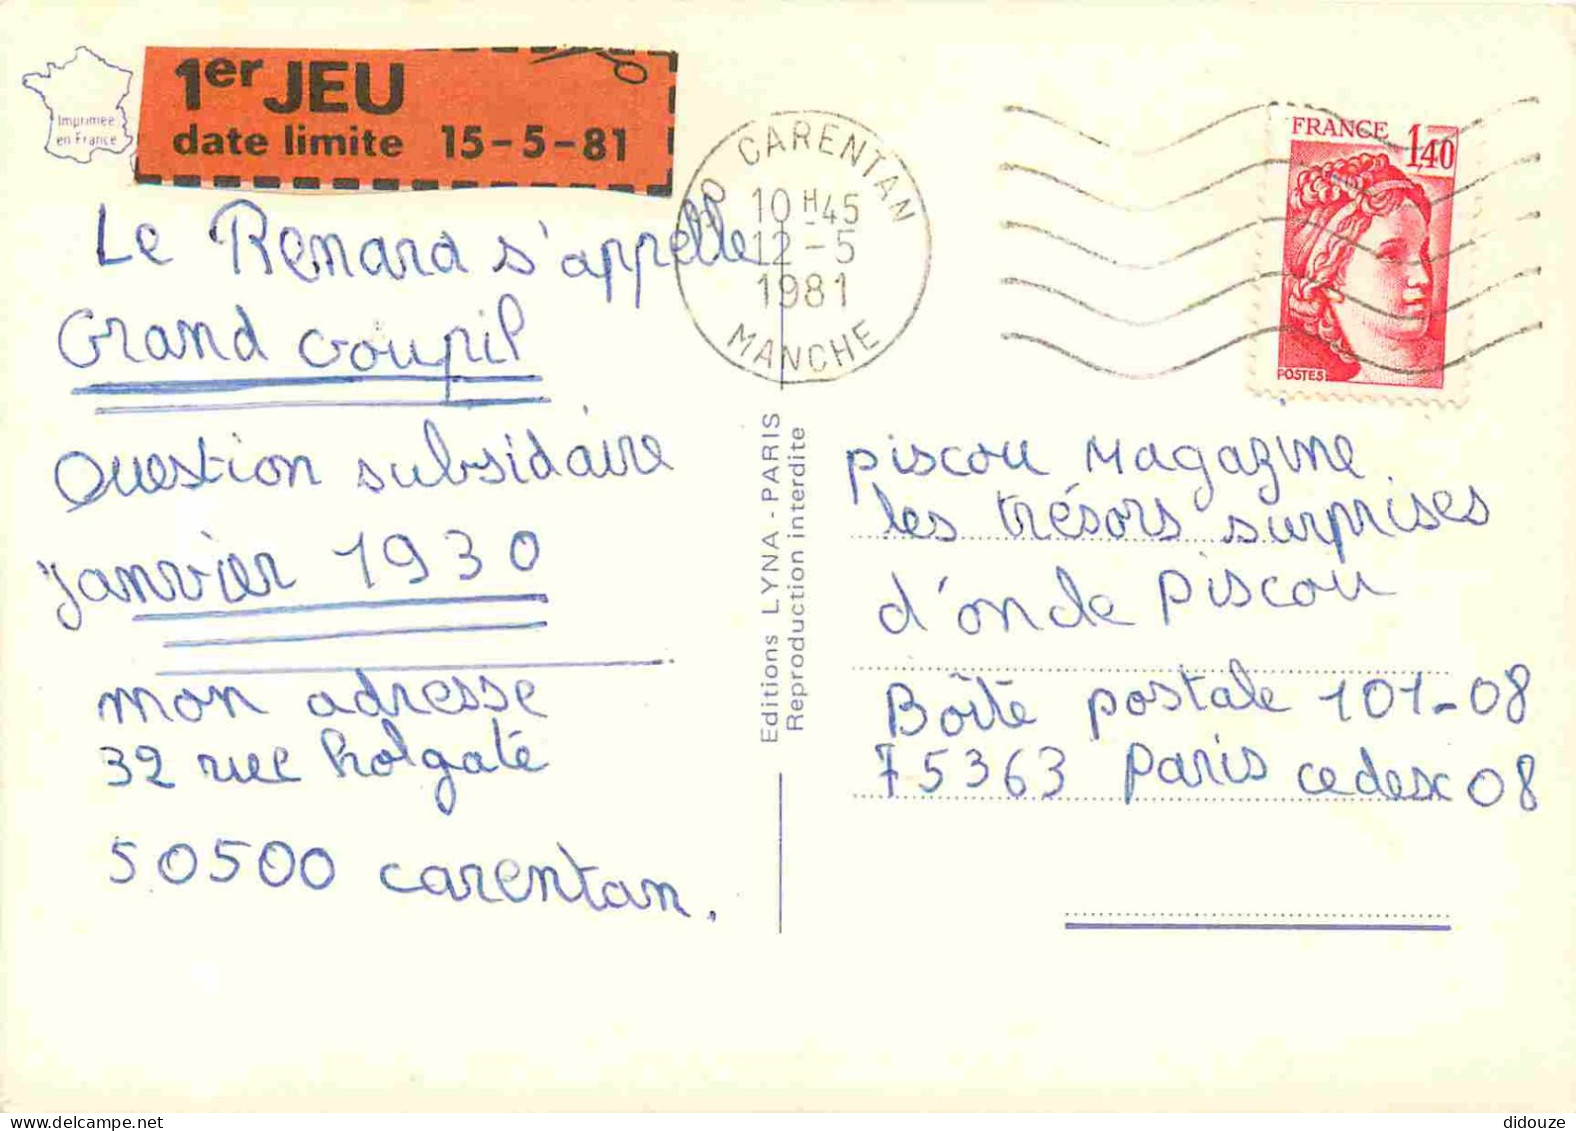 Imprimée
en France
1er JEU
date limite 15-5-81
Le Renard s'appelle
Grand Goupil
Question subsidaire
Janvier 1930
mon adresse
32 rue holgate
50500 carentan.
50 CARENTAN
10H45
12-5
1981
MANCHE
FRANCE 1,40
POSTES
Editions LYNA - PARIS
Reproduction interdite
Piscou Magazine
les trésors surprises
d'oncle Piscou
Boîte postale 101-08
75363 Paris cedex 08
didouze